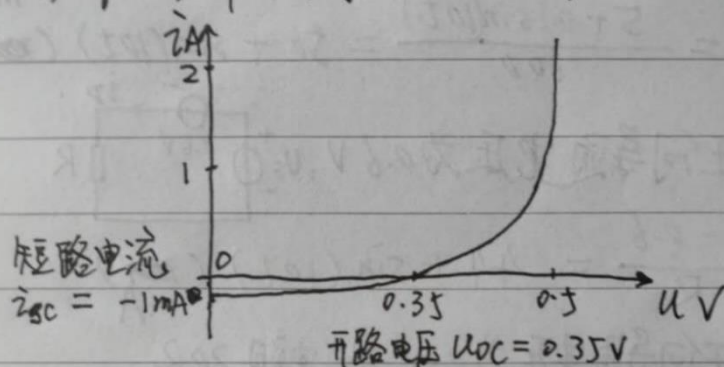 iA
2
1
0
短路电流
isc = -1mA
0.35
0.5
u V
开路电压 uoc = 0.35V